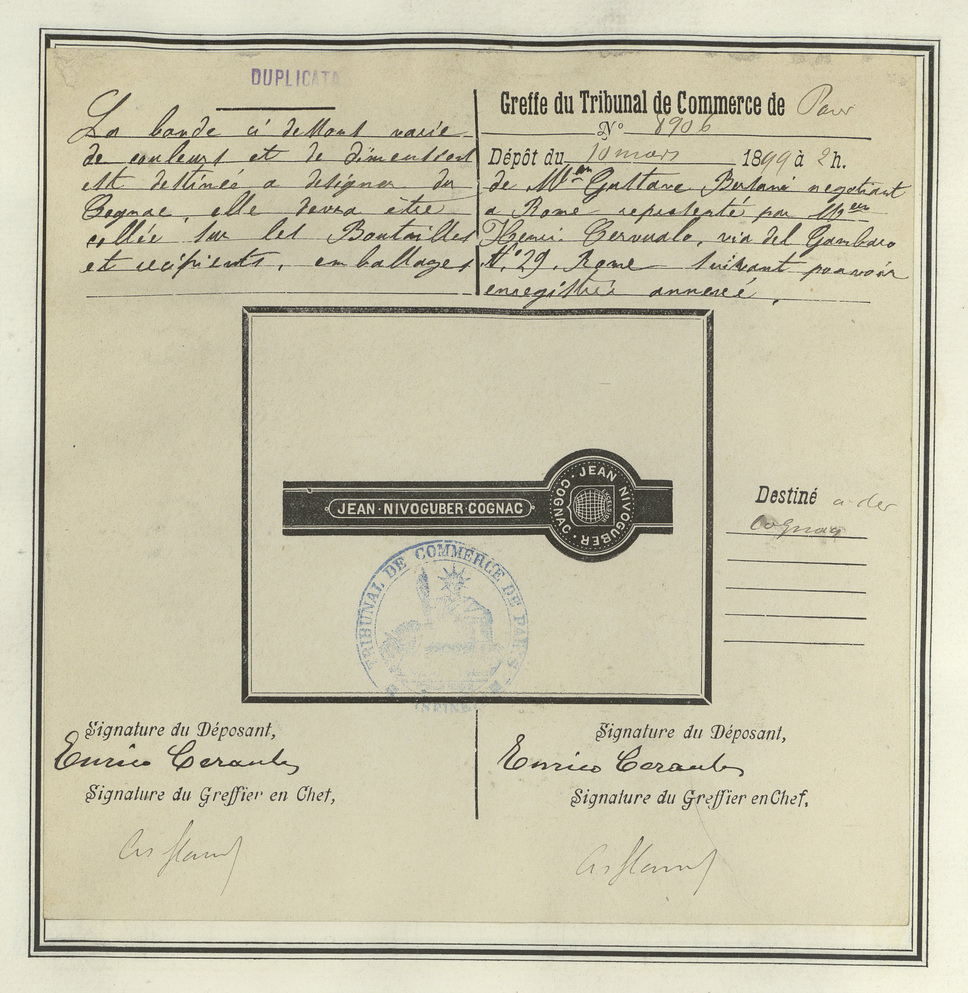 DUPLICATA
La bande ci dessous varie
de couleurs et de dimensions
est destinée a designer du
Cognac, elle devra être
collée sur les Bouteilles
et récipients, emballages
Greffe du Tribunal de Commerce de Paris
N° 8906
Dépôt du 10 mars 1899 à 2 h.
de Mr Gustave negotiant
a Rome representé par
Henri via del Gambaro
N. 29. Rome suivant pouvoir
enregistré annexé.
JEAN·NIVOGUBER·COGNAC
JEAN NIVOGUBER COGNAC
Destiné a des
Cognac
TRIBUNAL DE COMMERCE DE PARIS
(SEINE)
Signature du Déposant,
Enrico
Signature du Greffier en Chef,
Signature du Déposant,
Enrico
Signature du Greffier en Chef,